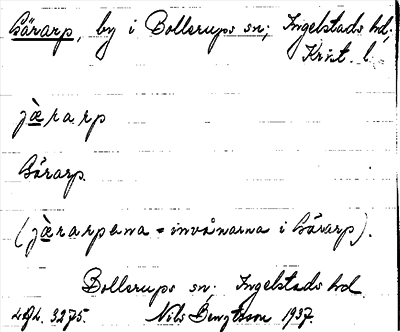 Gärarp, by i Bollerups sn; Ingelstads hd;
Krist. l.
jæ̀rarp
Gärarp.
(jæ̀rarpana = invånarna i Gärarp).
Bollerups sn. Ingelstads hd.
3275. Nils Bengtsson 1937.